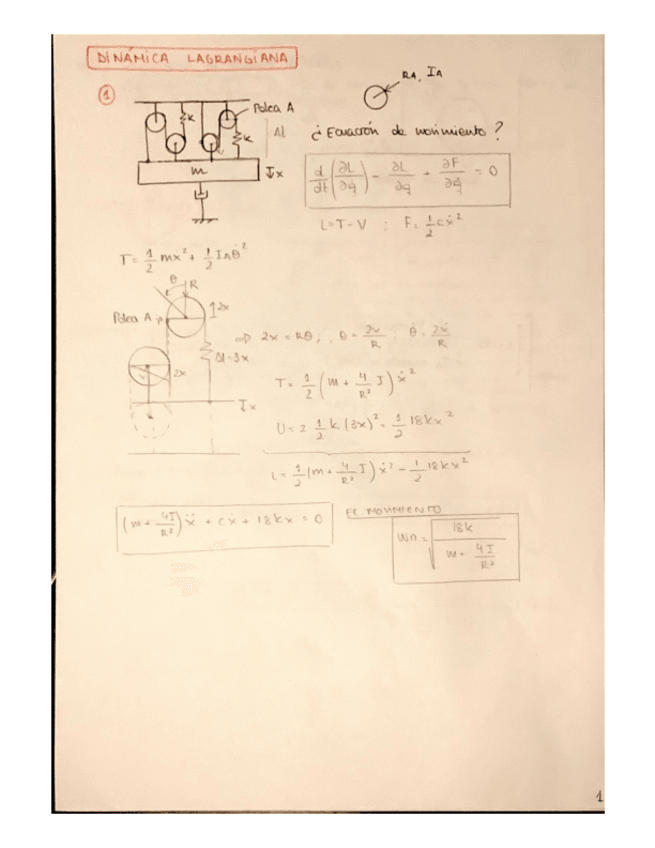 DINÁMICA LAGRANGIANA
RA, IA
1
Polea A
k
k
Δl
m
x
¿Ecuación de movimiento?
d/dt (∂L/∂q̇) - ∂L/∂q + ∂F/∂q̇ = 0
L = T - V ; F = 1/2 cẋ²
T = 1/2 mẋ² + 1/2 IA θ̇²
θ
R
2x
Polea A
⇒ 2x = Rθ; θ = 2x/R ; θ̇ = 2ẋ/R
Δl=3x
2x
T = 1/2 (m + 4/R² I) ẋ²
x
U = 2 1/2 k (3x)² = 1/2 18kx²
L = 1/2 (m + 4/R² I) ẋ² - 1/2 18kx²
(m + 4I/R²) ẍ + cẋ + 18kx = 0
EC MOVIMIENTO
Wn = √(18k / (m + 4I/R²))
1